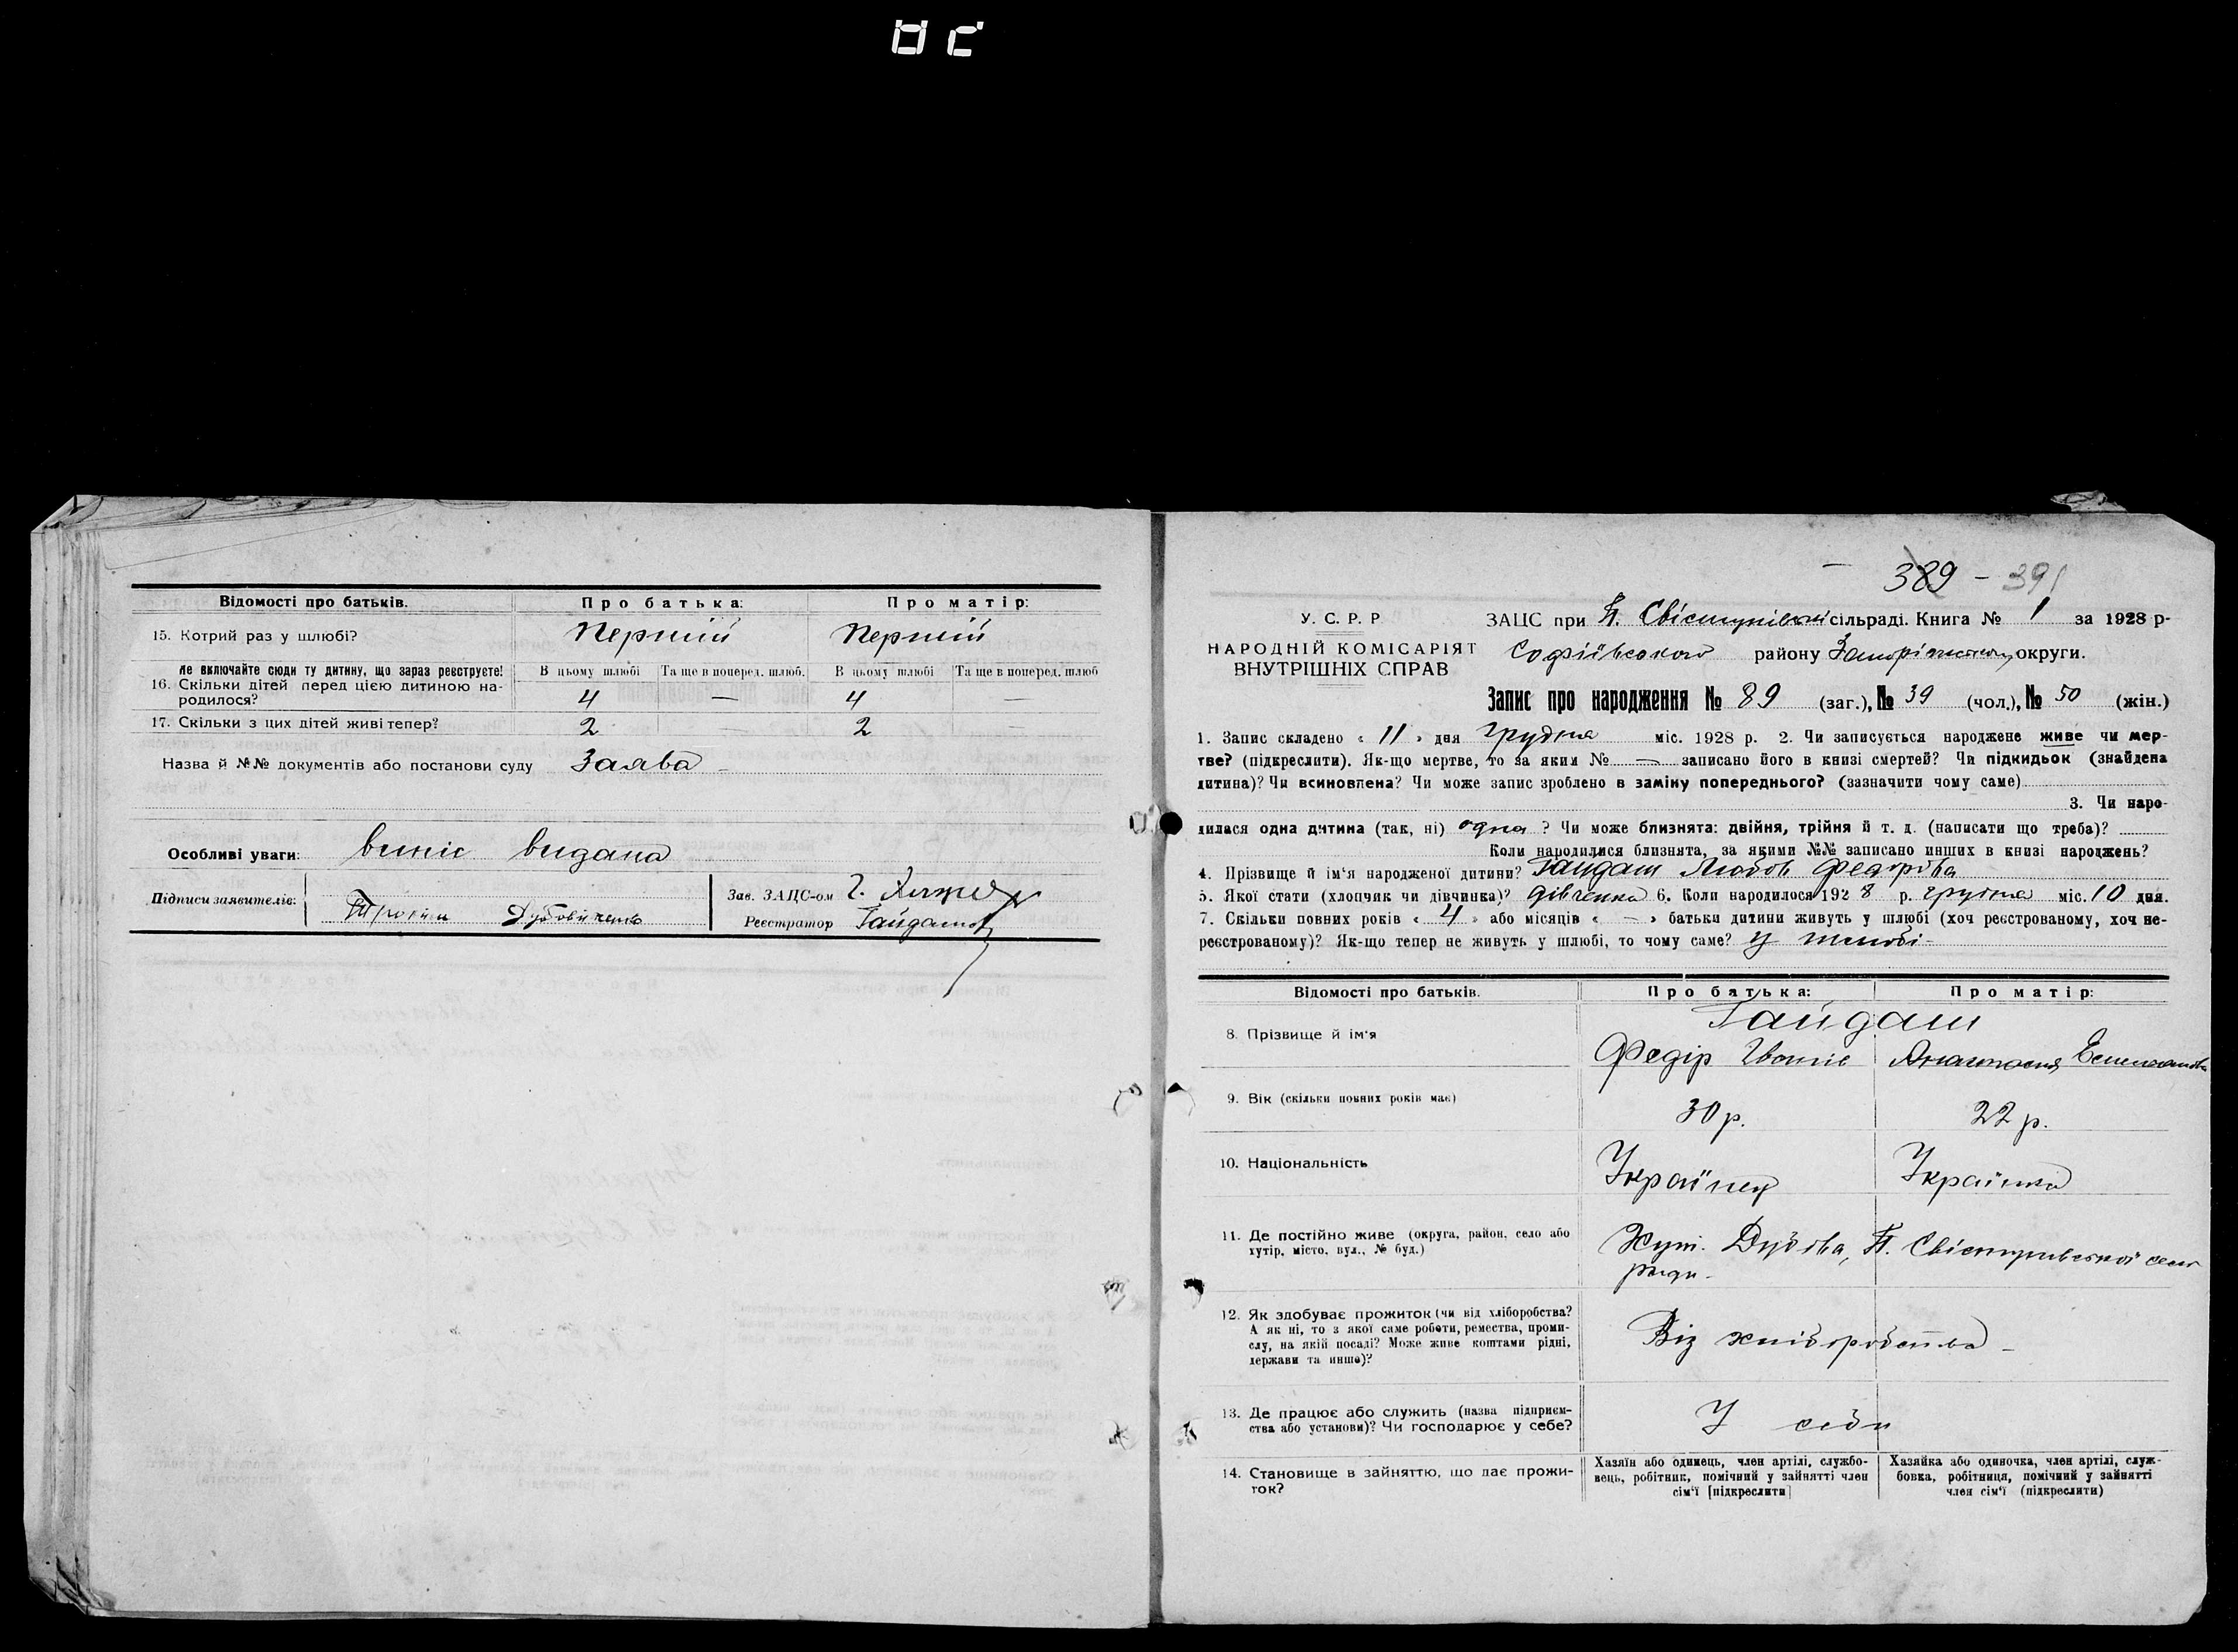 Відомості про батьків. Про батька: Про матір:
15. Котрий раз у шлюбі? Перший Перший
Не включайте сюди ту дитину, що зараз реєструєте! В цьому шлюбі Та ще в поперед. шлюб. В цьому шлюбі Та ще в поперед. шлюб
16. Скільки дітей перед цією дитиною на-
родилося? 4 — 4 —
17. Скільки з цих дітей живі тепер? 2 — 2 —
Назва й №№ документів або постанови суду Заява –
Особливі уваги: випис видана
Підписи заявителів: Дубовиченко
Зав. ЗАЦС-ом
Реєстратор Гайдаш
389 – 391
У. С. Р. Р
НАРОДНІЙ КОМІСАРІЯТ
ВНУТРІШНІХ СПРАВ
ЗАЦС при П. Свістунівській сільраді. Книга № 1 за 1928 р-
Софіївського району Запоріжської округи.
Запис про народження № 89 (заг.), № 39 (чол.), № 50 (жін.)
1. Запис складено « 11 » дня грудня міс. 1928 р. 2. Чи записується народжене живе чи мер-
тве? (підкреслити). Як-що мертве, то за яким № — записано його в книзі смертей? Чи підкидьок (знайдена
дитина)? Чи всиновлена? Чи може запис зроблено в заміну попереднього? (зазначити чому саме)
3. Чи наро-
дилася одна дитина (так, ні) одна ? Чи може близнята: двійня, трійня й т. д. (написати що треба)?
Коли народилися близнята, за якими №№ записано инших в книзі народжень?
4. Прізвище й ім'я народженої дитини? Гайдаш Любов Федорівна
5. Якої стати (хлопчик чи дівчинка)? дівченка 6. Коли народилося 1928 р. грудня міс. 10 дня.
7. Скільки повних років « 4 » або місяців « — » батьки дитини живуть у шлюбі (хоч реєстрованому, хоч не-
реєстрованому)? Як-що тепер не живуть у шлюбі, то чому саме? У шлюбі –
Відомості про батьків. Про батька: Про матір:
Гайдаш
8. Прізвище й ім'я Федір Іванів Анастасія
9. Вік (скільки повних років має) 30 р. 22 р.
10. Національність Українец Українка
11. Де постійно живе (округа, район, село або
хутір, місто, вул., № буд.) Хут. Дубова, П. Свістунивської сель
ради –
12. Як здобуває прожиток (чи від хліборобства?
А як ні, то з якої саме роботи, ремества, проми-
слу, на якій посаді? Може живе коштами рідні,
держави та инше)? Віз хліборобства –
13. Де працює або служить (назва підприєм-
ства або установи)? Чи господарює у себе? У себи
14. Становище в зайняттю, що дає прожи-
ток?
Хазяїн або одинець, член артілі, службо-
вець, робітник, помічний у зайнятті член
сім'ї [підкреслити]
Хазяйка або одиночка, член артілі, служ-
бовка, робітниця, помічний у зайнятті
член сім'ї (підкреслити)